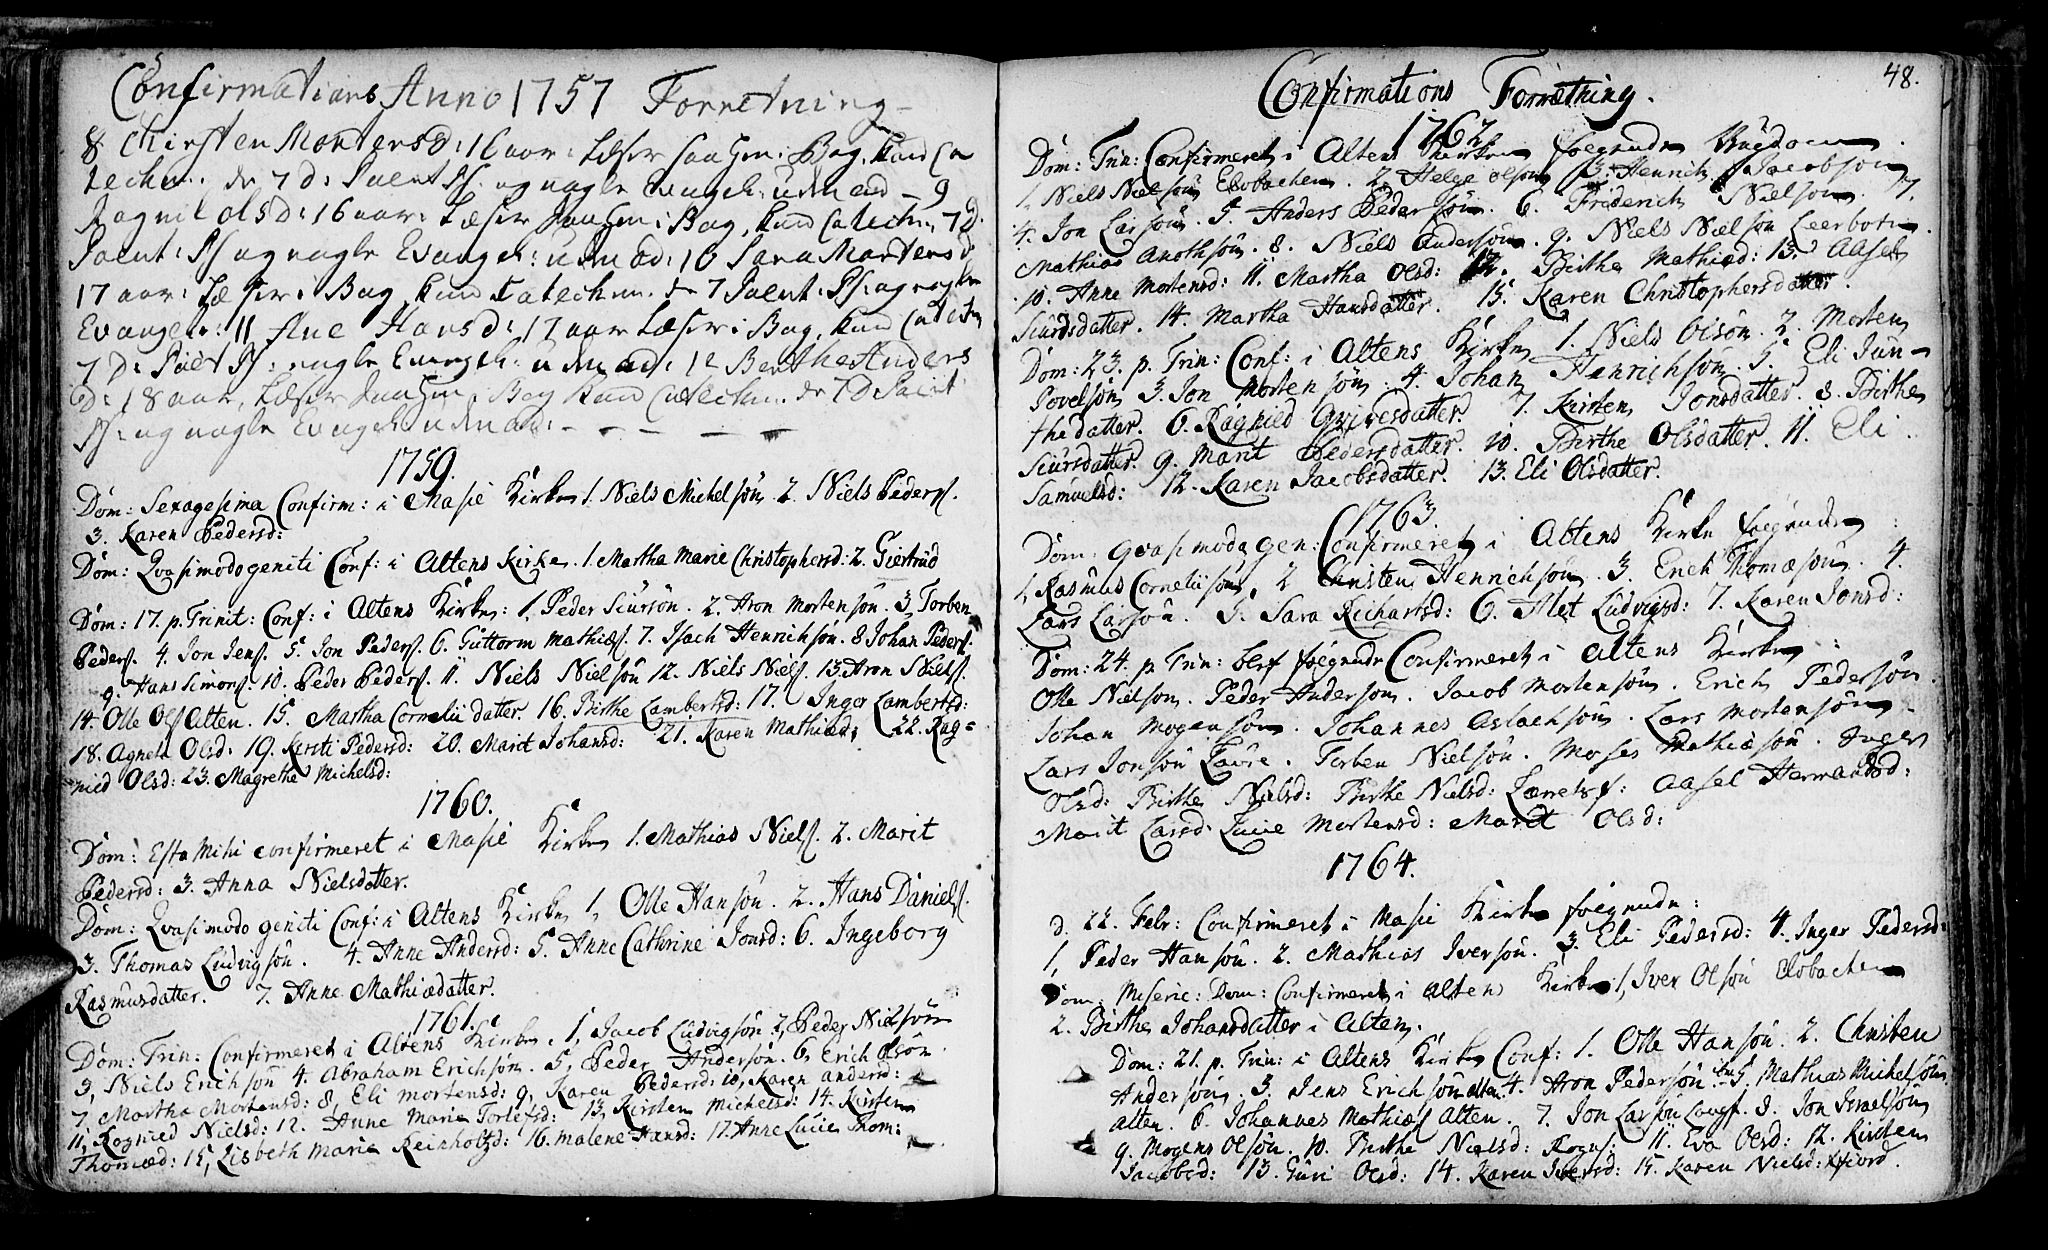 Confirmations Anno 1757 Forretning
8 Chirsten Mortensd: 16 aar: Læser i Bog, kand Ca
techm. de 7 d: Poenit Ps: og nogle Evangel: udenad - 9
Ragnil olsd: 16 aar: Læser i Bog, kund Catechm, 7 d.
Poenit: Ps og nogle Evangel: udenad: 10 Sara Mortensd
17 aar: Læser i Bog, kund Catechm. de 7 Poenit: Ps: og nogle
Evangele: 11 Ane Hansd: 17 aar Læser i Bog, kund Catechm
7 D: Ps: nogle Evangel: udenad: 12 Berthe Anders
D: 18 aar, Læser i Bog kund Catechm. de 7 D Poenit
Ps: og nogle Evangel: udenad: - - - - -
1759.
Dom: Sexagesima Confirm: i Masie Kirke 1. Niels Michelsøn. 2. Niels Peders.
3. Karen Pedersd:
Dom: Qvasimodogeniti Conf: i Altens Kirke. 1. Martha Marie Christophersd: 2. Giertrud
Dom: 17. p. Trinit: Conf: i Altens Kirke: 1. Peder Siursøn. 2. Aron Mortensøn. 3, Torben
Peders. 4. Jon Jens. 5. Jon Peders. 6. Guttorm Mathies. 7. Isach Henrichsøn. 8 Johan Peders.
9. Hans Simons: 10. Peder Peders. 11. Niels Nielsøn 12. Niels Niels. 13. Aron Niels.
14. Olle Ols Alten. 15. Martha Cornelii datter. 16. Birthe Lambertsd: 17. Inger Lambertsd:
18. Agneta Olsd: 19. Kirsti Pedersd: 20. Marit Johansd: 21. Karen Mathiæd: 22. Rag=
nild Olsd: 23. Magrethe Michelsd:
1760.
Dom: Esto Mihi confirmeret i Masie Kirke 1. Mathias Niels. 2. Marit
Pedersd: 3. Anna Nielsdatter.
Dom: Qvasimodo geniti Conf: i Altens Kirke 1, Olle Hansøn. 2. Hans Daniels.
3. Thomas Ludvigsøn. 4. Anne Andersd: 5. Anne Cathrine Jonsd: 6. Ingeborg
Rasmusdatter. 7. Anne Mathiædatter.
1761.
Dom: Trin: Confirmeret i Altens Kirke, 1, Jacob Ludvigsøn 2, Peder Nielsøn
3, Niels Erichsøn 4. Abraham Erichsøn. 5, Peder Andersøn. 6, Erich Olsøn.
7, Martha Mortensd: 8, Eli Mortensd: 9, Karen Pedersd: 10, Karen Andersd:
11, Rognied Nielsd: 12. Anne Marie Torlefsd: 13, Kirsten Michelsd: 14. Kirsten
Thomæd: 15, Lisbeth Marie Reinholtzd: 16. Malene Hansd: 17. Anne Lucie Thom:
48.
Confirmations Forretning.
1762
Dom: Trin: Confirmeret i Altens Kirke følgende Ungdom
1, Niels Nielsøn Elvbachen. 2, Helge Olsøn 3. Henrich Jacobsøn
4. Jon Larsøn. 5. Anders Pedersøn. 6. Friderich Nielsøn 7.
Mathias Anothsøn. 8. Niels Andersøn. 9. Niels Nielsøn Leerbotn.
10. Anne Mortensd: 11. Martha Olsd: 12. Birthe Mathiæd: 13. Aasel
Siurdsdatter. 14. Martha Hansdatter. 15. Karen Christophersdatter.
Dom: 23. p. Trin: Conf: i Altens Kirke 1. Niels Olsøn. 2. Morten
Povelsøn 3. Jon Mortensøn. 4. Johan Henrichsøn. 5. Eli Jun-
thedatter. 6. Ragnild Gyvresdatter. 7. Kirsten Jonsdatter. 8. Birthe
Siursdatter. 9. Marit Pedersdatter. 10. Birthe Olsdatter. 11. Eli
Samuelsd: 12. Karen Jacobsdatter. 13. Eli Olsdatter.
1763.
Dom: Qvasimodogen: Confirmeret i Altens Kirke følgende:
1, Rasmus Corneliisøn, 2 Christen Henrichsøn. 3. Erich Thomæsøn. 4.
Lars Larsøn. 5. Sara Richartsd: 6. Alet Ludvigsd: 7. Karen Jonsd:
Dom: 24. p. Trin: blef følgende Confirmeret i Altens Kirke:
Olle Nielsøn. Peder Andersøn. Jacob Mortensøn. Erich Pedersøn.
Johan Mogensøn. Johannes Aslachsøn. Lars Mortensøn
Lars Jonsøn Laure. Torben Nielsøn. Moses Mathiæsøn. Inger
Olsd: Birthe Nielsd: Birthe Nielsd: Aasel Hermandsd:
Marit Larsd. Lucie Mortensd: Marit Olsd:
1764.
d. 22. Febr: Confirmeret i Masie Kirke følgende:
1, Peder Hansøn. 2. Mathias Iversøn. 3. Eli Pedersd: 4. Inger Pedersd:
Dom: Miseric: Dom: Confirmeret i Altens Kirke 1, Iver Olsøn Elvbachen
2. Birthe Johansdatter i Alten.
Dom: 21. p. Trin: i Altens Kirke Conf: 1. Olle Hansøn. 2. Christen
Andersøn. 3. Jens Erichsøn alten. 4. Aron Pedersøn 5. Mathias Michelsøn
alten. 6. Johannes Mathies Alten. 7. Jon Larsøn Langf. 8. Jon Israelsøn
9. Mogens Olsøn. 10. Birthe Nielsd: 11. Eva Olsd: 12. Kirsten
Jacobsd: 13. Guri Olsd: 14. Karen Iversd: 15. Karen Nielsd: